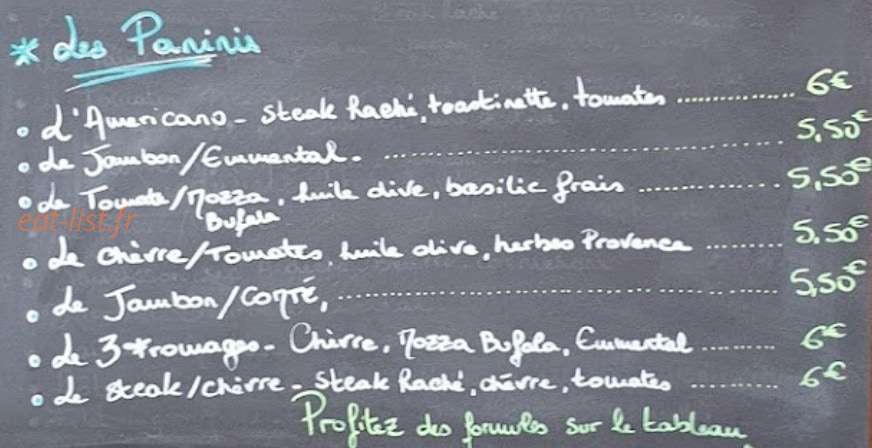 * Les Paninis
• L'Americano - Steak haché, toastinette, tomates .............. 6€
• Le Jambon/Emmental. .............. 5,50€
• Le Tomate/Mozza Bufala, huile olive, basilic frais .............. 5,50€
eat-list.fr
• Le Chèvre/Tomates, huile olive, herbes Provence ........ 5,50€
• Le Jambon/COMTÉ, .............. 5,50€
• Le 3 Fromages - Chèvre, Mozza Bufala, Emmental ......... 6€
• Le Steak/chèvre - Steak haché, chèvre, tomates ............ 6€
Profitez des formules sur le tableau